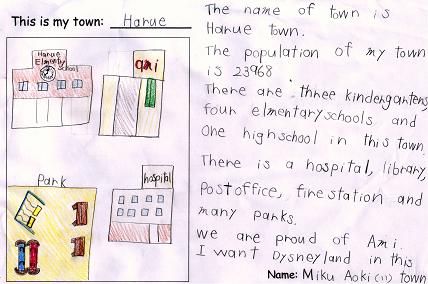 This is my town: Hanue
Hanue
Elmentry
School
ami
Park
hospital
The name of town is
Hanue town.
The population of my town
is 23968
There are three kindergartens,
four elmentaryschools and
one highschool in this town.
There is a hospital, library,
Postoffice, fire station and
many parks.
we are proud of Ami.
I want Dysneyland in this
town
Name: Miku Aoki (11)